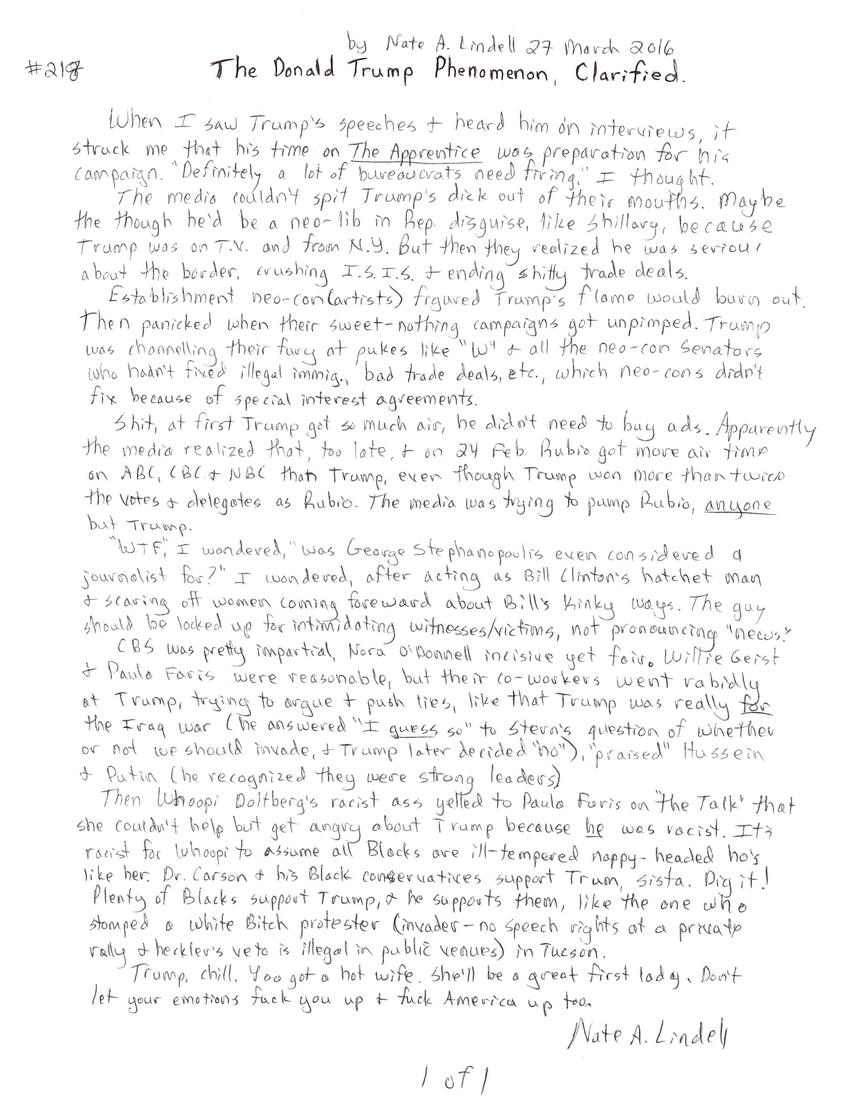 by Nate A. Lindell 27 March 2016
#218 The Donald Trump Phenomenon, Clarified.
When I saw Trump's speeches + heard him on interviews, it
struck me that his time on The Apprentice was preparation for his
campaign. "Definitely a lot of bureaucrats need firing," I thought.
The media couldn't spit Trump's dick out of their mouths. Maybe
the though he'd be a neo-lib in Rep. disguise, like Shillary, because
Trump was on T.V. and from N.Y. But then they realized he was serious
about the border, crushing I.S.I.S. + ending shitty trade deals.
Establishment neo-con(artists) figured Trump's flame would burn out.
Then panicked when their sweet-nothing campaigns got unpimped. Trump
was channelling their fury at pukes like "W" + all the neo-con Senators
who hadn't fixed illegal immig., bad trade deals, etc., which neo-cons didn't
fix because of special interest agreements.
Shit, at first Trump got so much air, he didn't need to buy ads. Apparently
the media realized that, too late, + on 24 Feb. Rubio got more air time
on ABC, CBC + NBC than Trump, even though Trump won more than twice
the votes + delegates as Rubio. The media was trying to pump Rubio, anyone
but Trump.
"WTF," I wondered, "was George Stephanopoulis even considered a
journalist for?" I wondered, after acting as Bill Clinton's hatchet man
+ scaring off women coming foreward about Bill's kinky ways. The guy
should be locked up for intimidating witnesses/victims, not pronouncing "news."
CBS was pretty impartial, Nora O'Donnell incisive yet fair. Willie Geist
+ Paula Faris were reasonable, but their co-workers went rabidly
at Trump, trying to argue + push lies, like that Trump was really for
the Iraq war (he answered "I guess so" to Stern's question of whether
or not we should invade, + Trump later decided "no"), "praised" Hussein
+ Putin (he recognized they were strong leaders)
Then Whoopi Doltberg's racist ass yelled to Paula Faris on "the Talk" that
she couldn't help but get angry about Trump because he was racist. It's
racist for Whoopi to assume all Blacks are ill-tempered nappy-headed ho's
like her. Dr. Carson + his Black conservatives support Trum, sista. Dig it!
Plenty of Blacks support Trump, + he supports them, like the one who
stomped a white Bitch protester (invader - no speech rights at a private
rally + heckler's veto is illegal in public venues) in Tucson.
Trump, chill. You got a hot wife. She'll be a great first lady. Don't
let your emotions fuck you up + fuck America up too.
Nate A. Lindell
1 of 1